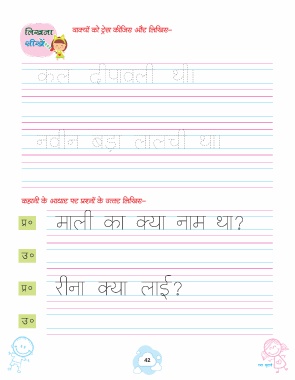 लिखना
सीखें
वाक्यों को ट्रेस कीजिए और लिखिए-
कल दीपावली थी।
नवीन बड़ा लालची था।
कहानी के आधार पर प्रश्नों के उत्तर लिखिए-
प्र० माली का क्या नाम था?
उ०
प्र० रीना क्या लाई?
उ०
42